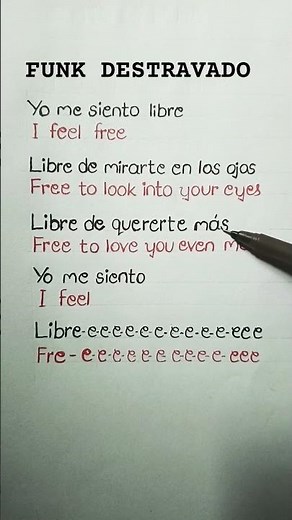 FUNK DESTRAVADO
Yo me siento libre
I feel free
Libre de mirarte en los ojos
Free to look into your eyes
Libre de quererte más
Free to love you even
Yo me siento
I feel
Libre-e-e-e-e-e-e-e-e-e-eee
Fre-e-e-e-e-e-e-e-e-e-eee